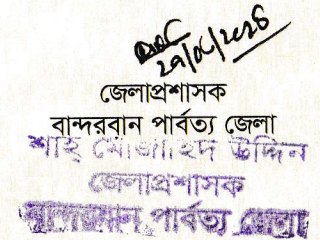 জেলাপ্রশাসক
বান্দরবান পার্বত্য জেলা
শাহ্ মোজাহিদ উদ্দিন
জেলাপ্রশাসক
বান্দরবান পার্বত্য জেলা